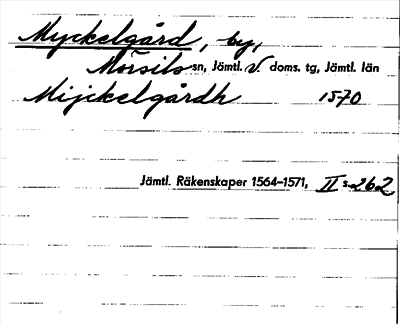 Myckelgård, by,
Mörsils sn, Jämtl. V. doms. tg, Jämtl. län
Mijckelgårdh 1570
Jämtl. Räkenskaper 1564–1571, II s. 262